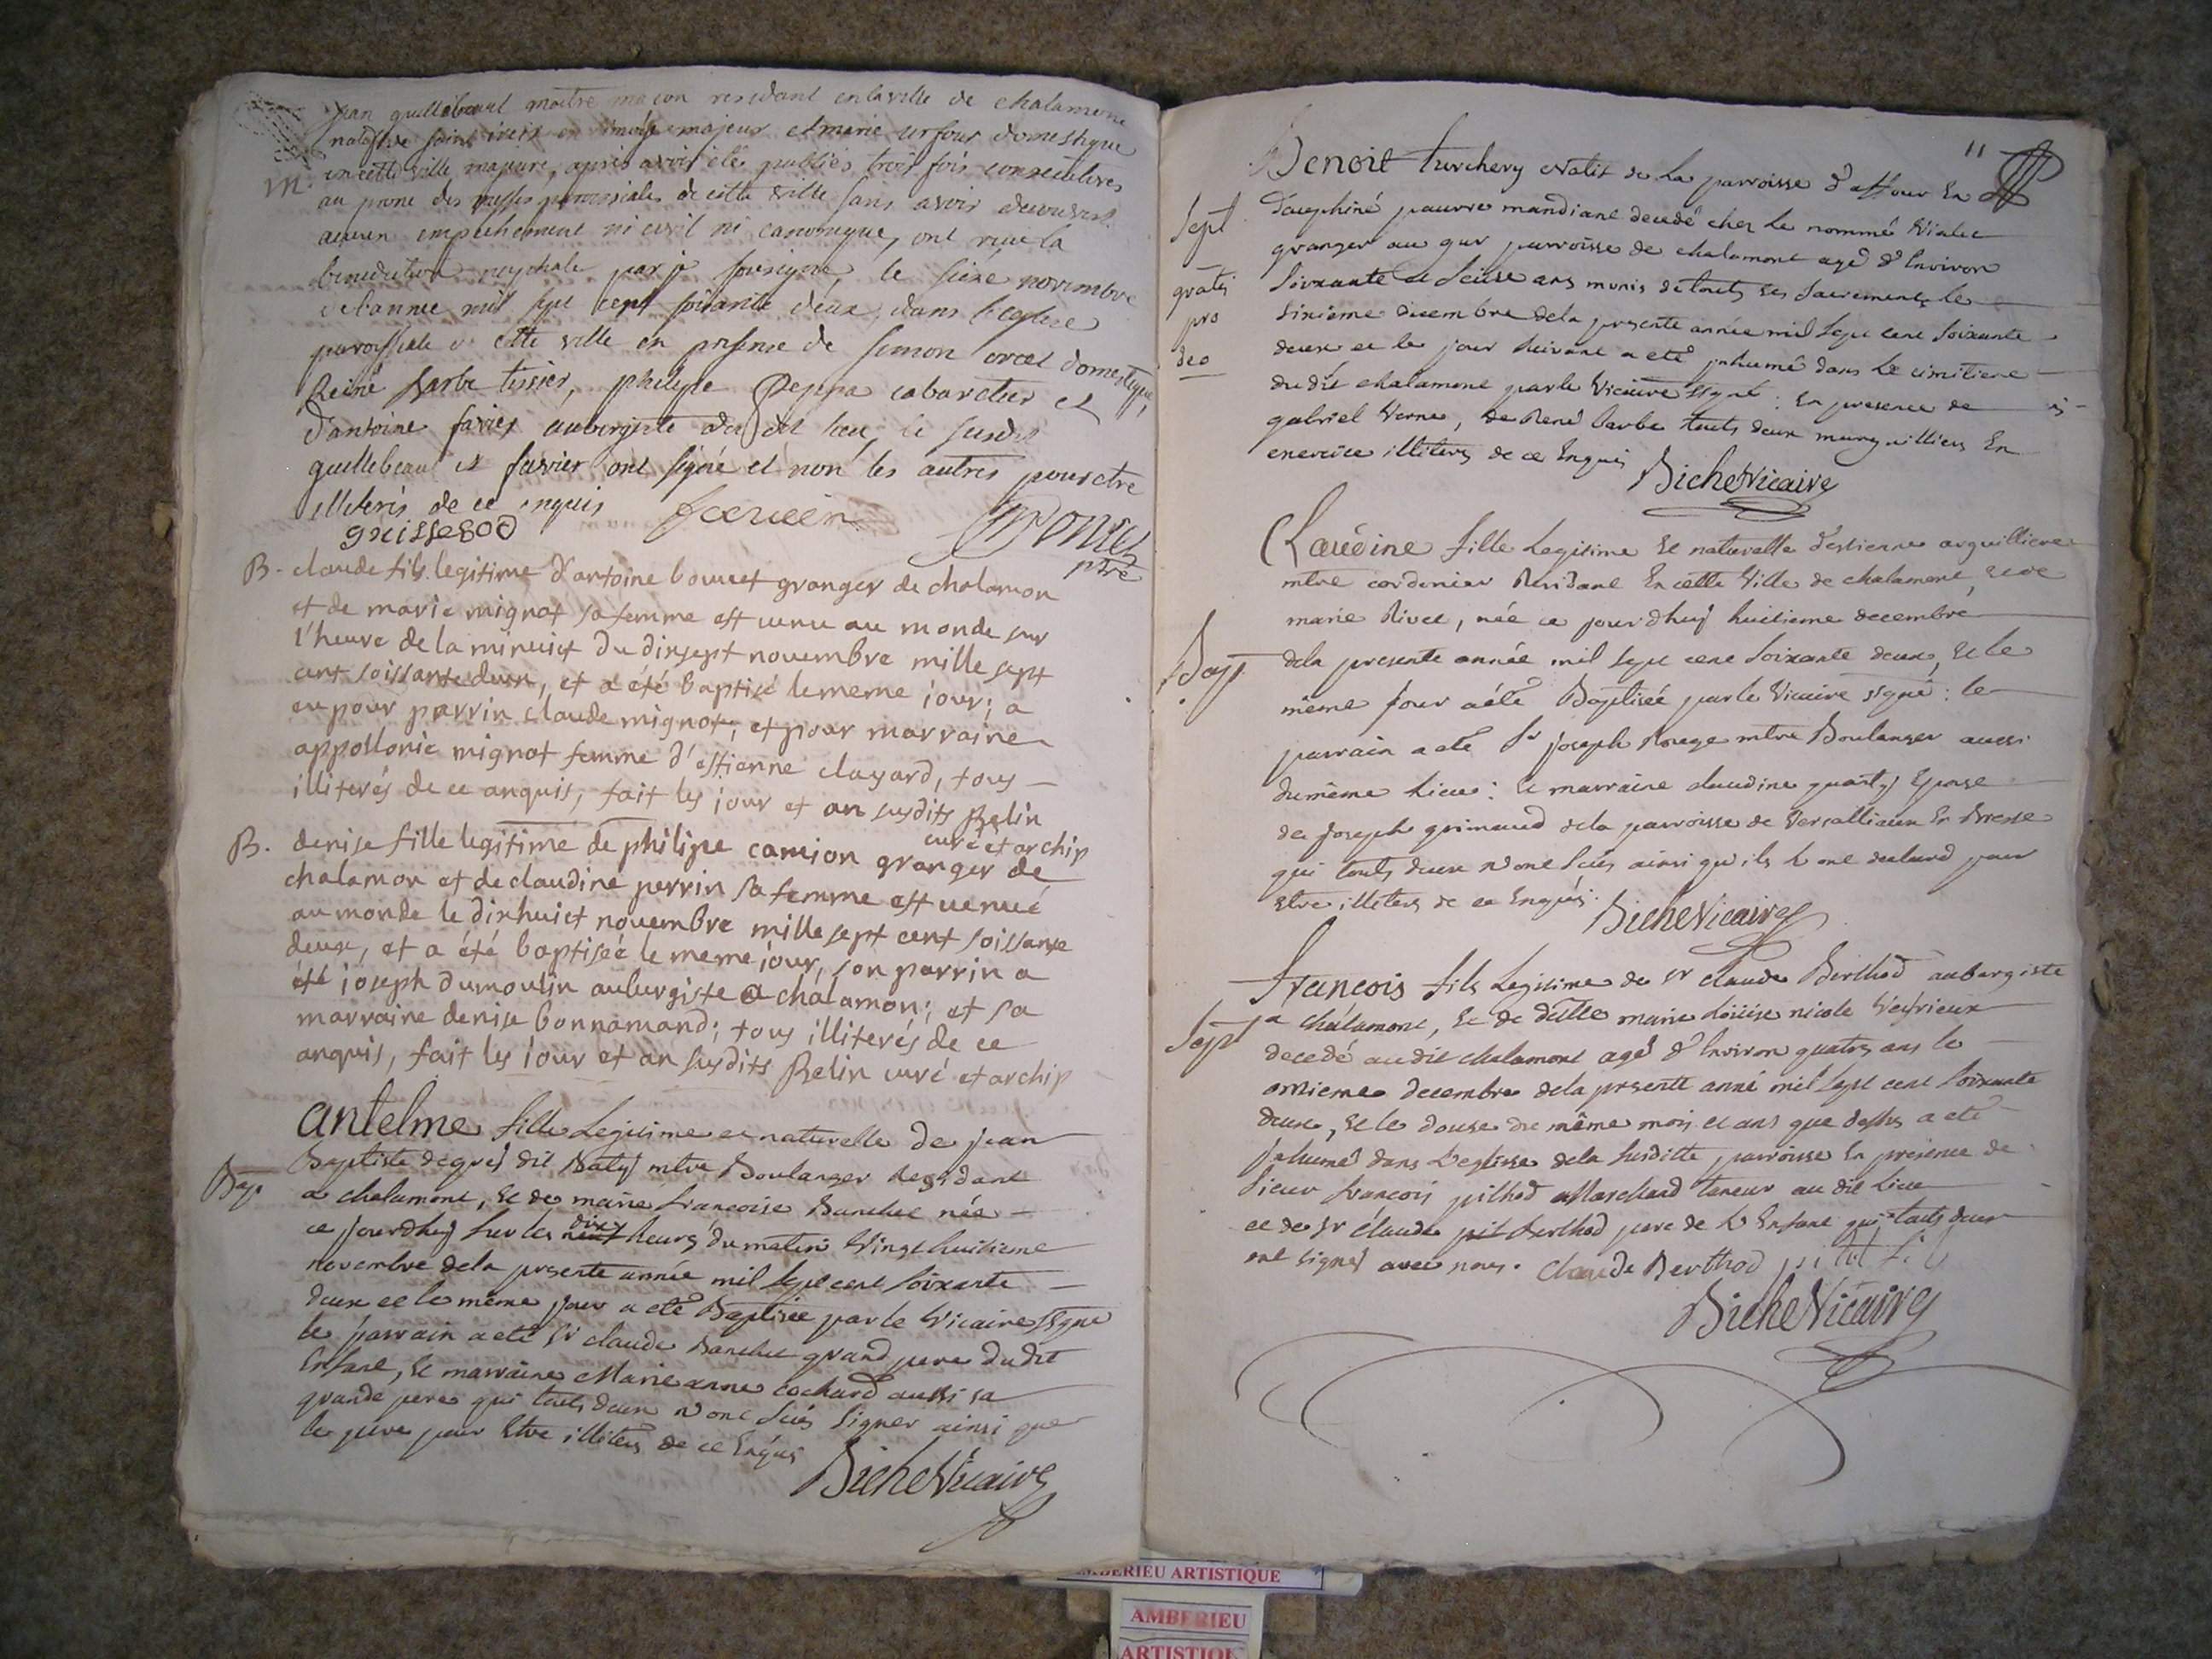 jean guillebeaud maitre maçon residant en la ville de chalamont
natif de saint ireix en limoge majeur et marie urfour domestique
m. en cette ville majeure, apres avoir été publiés trois fois consecutives
au prone des messes paroissiales de cette ville sans avoir decouvert
aucun empechement ni civil ni canonique, ont reçu la
benediction nuptiale par je soussigné, le seize novembre
de l'annee mil sept cent soixante deux, dans l'eglise
paroissiale de cette ville en presence de simon orcel domestique,
Reiné barbe tissier, philipe Peppa cabaretier et
d'antoine favier aubergiste du dit lieu, le susdit
guillebeaud et favier ont signé et non les autres pour etre
illiterés de ce enquis favier
ptre
B. claude fils legitime d'antoine bouvet granger de chalamon
et de marie mignot sa femme est venu au monde sur
l'heure de la minuict du dixsept novembre mille sept
cent soissante deux, et a été baptisé le meme jour; a
eu pour parrin claude mignot, et pour marraine
appollonie mignot femme d'estienne clayard, tous
illiterés de ce anquis, fait les jour et an susdits Belin
curé et archip
B. denise fille legitime de philipe camion granger de
chalamon et de claudine perrin sa femme est venue
au monde le dixhuict novembre mille sept cent soissante
deux, et a été baptisée le meme jour, son parrin a
été joseph dumoulin aubergiste a chalamon; et sa
marraine denise bonnamand; tous illiterés de ce
anquis, fait les jour et an susdits Belin curé et archip
antelme fille Legitime et naturelle de jean
Baptiste degrej dit Batij mtre Boulanger Residant
Bap. a chalamont, et de marie francoise Banchet née
ce jourdhuj sur les dix heures du matin vingt huitieme
novembre dela presente année mil sept cent soixante
deux et le même jour a eté Baptisée par le vicaire ssigné
le parrain a eté Sr claude Banchet grand pere dudit
Enfant, et marraine Marie anne cochard aussi sa
grande pere qui touts deux n'ont sçus signer ainsi que
le pere pour Etre illiters de ce Enquis
Biche Vicaire
11
Benoit turchery Natif de La parroisse d'assour En
Dauphiné pauvre mandiant decedé chez Le nommé Violet
Sept granger au gur parroisse de chalamont agé d'Environ
gratis Soixante et seise ans munis de touts ses sacrements le
pro sixieme decembre dela presente année mil sept cent soixante
deo deux et le jour suivant a eté inhumé dans Le cimitiere
du dit chalamont par le Vicaire ssigné: En presence de
gabriel Verne, de René barbe touts deux marguilliers En
exercice illiters de ce Enquis Biche Vicaire
Claudine fille Legitime et naturelle d'estienne arguilliere
mtre cordonier Residant En cette Ville de chalamont, et de
marie Rivet, née ce jourdhuy huitieme decembre
Bap. dela presente année mil sept cent soixante deux, et le
même jour a été Baptisée par le Vicaire ssigné: le
parrain a eté Sr joseph Rouge mtre Boulanger aussi
du même Lieu: et marraine claudine quantij Epouse
de joseph grimaud dela parroisse de Versallieux En Bresse
qui touts deux n'ont sçus ainsi qu'ils L'ont declaré pour
etre illiters de ce Enquis. Biche Vicaire
francois fils Legitime de Sr claude Berthod aubergiste
Sept a chalamont, et de delle marie Loüise nicole Veyrieux
decedé audit chalamont agé d'Environ quatre ans le
onzieme decembre dela presente anné mil sept cent soixante
deux, et le douse du même mois et ans que dessus a eté
inhumé dans L'eglisse dela susditte parroisse En presence de
sieur françois pithod Marchand taneur au dit Lieu
et de Sr claude Berthod pere de L'Enfant qui touts deux
ont signés avec nous. Claude Berthod
Biche Vicaire
AMBERIEU ARTISTIQUE
AMBERIEU
ARTISTIQUE